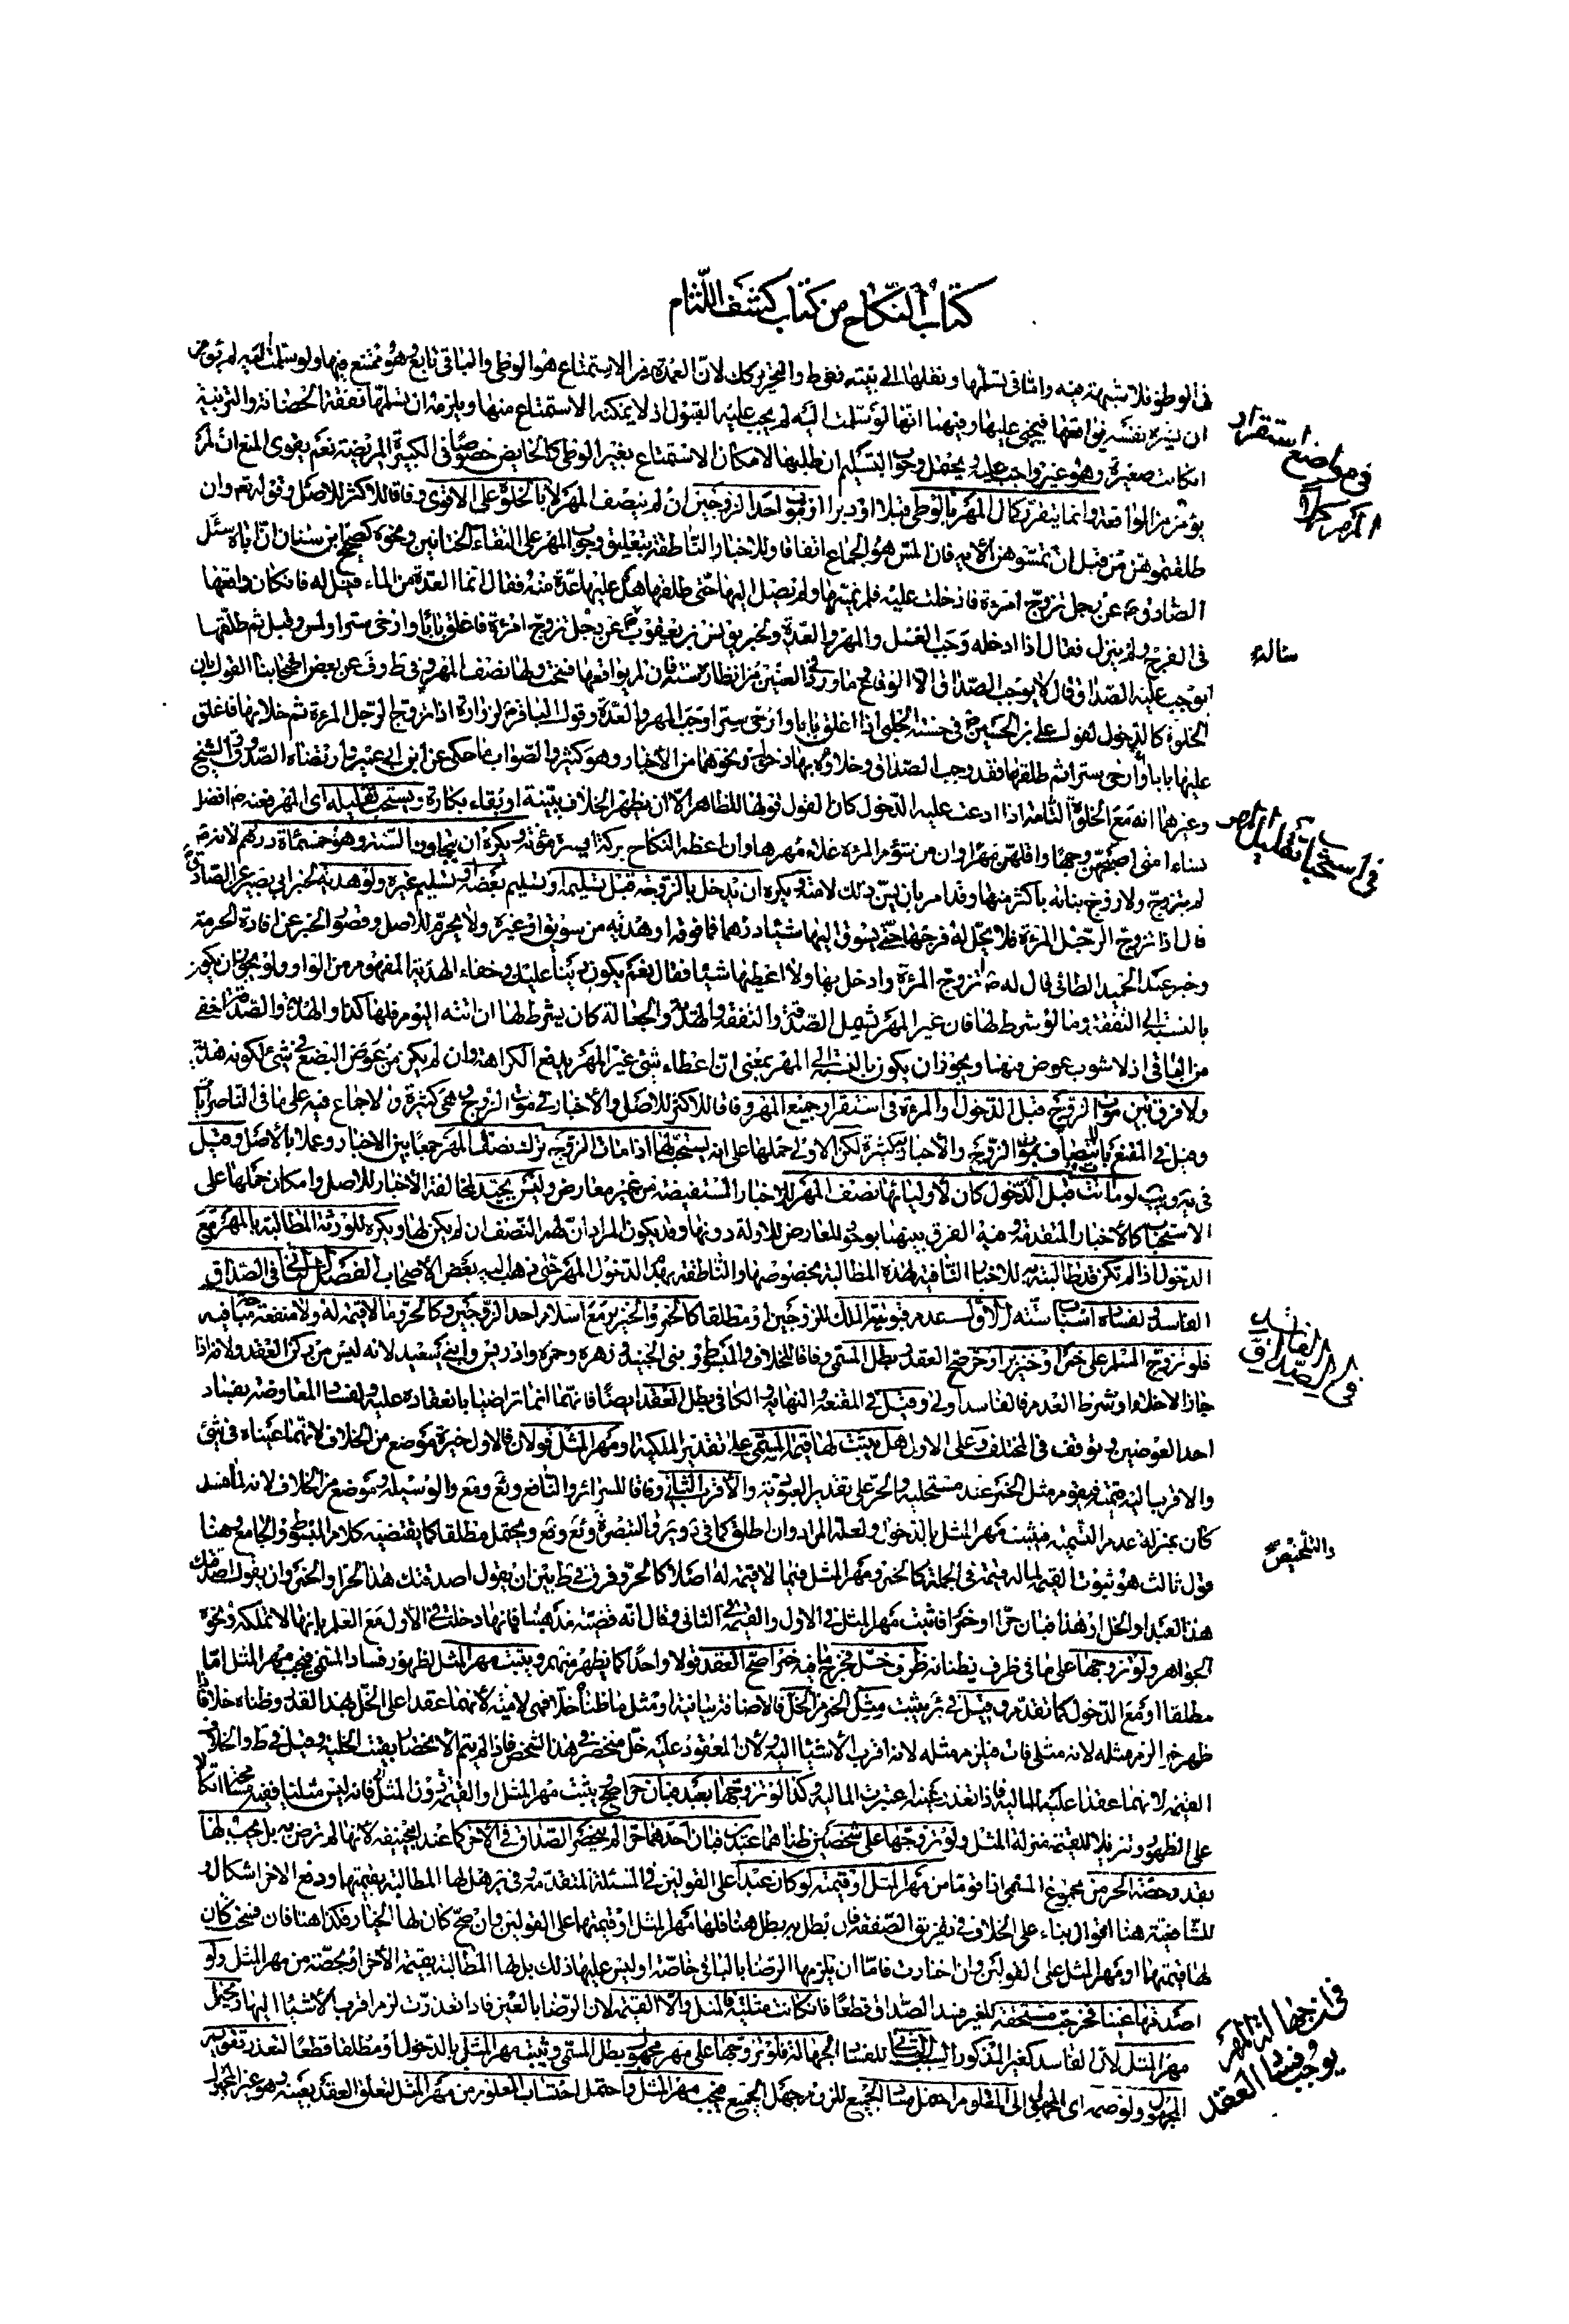 كتاب النكاح من كتاب كشف اللثام
فى الوطؤ فلا شبهة فيه واما فى تسلمها ونقلها الى بيته فغير والتحرير كك لان العمدة من الاستمتاع هو الوطى والباقى تابع وهو ممتنع منها ولو سلمت اليه لم يؤمن
ان يشره نفسه فيواقعها فيجنى عليها وفيهما انها لو سلمت اليه لم يجب عليه القبول اذ لا يمكنه الاستمتاع منها ويلزمه ان تسلمها نفقة الحضانة والتربية
ان كانت صغيرة وهو غير واجب عليه ويحتمل وجوب التسليم ان طلبها لامكان الاستمتاع بغير الوطى كالحايض خصوصا فى الكبيرة المريضة نعم يقوى المنع ان لم
يؤمن من المواقعة وانما يتقرر كمال المهر بالوطى قبلا او دبرا او بموت احد الزوجين ان لم ينصف المهر لا بالخلوة على الاقوى وفاقا للاكثر للاصل وقوله تعم وان
طلقتموهن من قبل ان تمسوهن الاية فان المس هو الجماع اتفاقا وللاخبار الناطقة بتعليق وجوب المهر على التقاء الختانين ونحوه كصحيح ابن سنان ان اباه سئل
الصادق ع عن رجل تزوج امرءة فادخلت عليه فلم يمسها ولم يصل اليها حتى طلقها هل عليها عدة منه فقال انما العدة من الماء قيل له فان كان واقعها
فى الفرج ولم ينزل فقال اذا ادخله وجب الغسل والمهر والعدة وخبر يونس بن يعقوب عن رجل تزوج امرءة فاغلق بابا وارخى سترا ولمس وقبل ثم طلقها
ايوجب عليه الصداق قال لا يوجب الصداق الا الوقاع مع ما ورد فى العنين من انتظاره سنة فان لم يواقعها فسخت ولها نصف المهر وفى ف عن بعض اصحابنا القول بان
الخلوة كالدخول لقول على بن الحسين ع فى حسنة الحلبى اذا اغلق بابا وارخى سترا وجب المهر والعدة وقول الباقر ع لزرارة اذا تزوج الرجل المرءة ثم خلا بها فاغلق
عليها بابا وارخى سترا ثم طلقها فقد وجب الصداق وخلاؤه بها دخول ونحوهما من الاخبار وهو كثير والصواب ما حكى عن ابن ابى عمير وارتضاه الصدوق والشيخ
وغيرهما انه مع الخلوة التامة اذا ادعت عليه الدخول كان القول قولها للظاهر الا ان يظهر الخلاف ببينة او بقاء بكارة ويستحب تقليله اى المهر فعنه ص افضل
نساء امتى اصبحهن وجها واقلهن مهرا وان من شؤم المرءة غلاء مهرها وان اعظم النكاح بركة ايسره مؤنة ويكره ان يتجاوز السنة وهو خمسمائة درهم لانه ص
لم يتزوج ولا زوج بناته باكثر منها وقد امر بان يسن ذلك لامته ويكره ان يدخل بالزوجة قبل تسليمه او تسليم بعضه او تسليم غيره ولو هدية لخبر ابى بصير عن الصادق ع
قال اذا تزوج الرجل المرءة فلا يحل له فرجها حتى يسوق اليها شيئا درهما فما فوقه او هدية من سويق او غيره ولا يحرم للاصل وقصور الخبر عن افادة الحرمة
وخبر عبد الحميد الطائى قال له ع اتزوج المرءة وادخل بها ولا اعطيها شيئا فقال نعم يكون دينا عليك وخفاء الهدية المفهوم من الواو ولو يجوز ان يكون
بالنسبة الى النفقة وما لو شرط لها فان غير المهر يشمل الصدقة والنفقة والهدية والجعالة كان يشرط لها ان اتته اليوم فلها كذا والهدية والصدقة اخفى
من الباقى اذ لا شوب عوض فيهما ويجوز ان يكون بالنسبة الى المهر بمعنى ان اعطاء شئ غير المهر يدفع الكراهة وان لم يكن من عوض البضع فى شئ لكونه هدية
ولا فرق بين موت الزوج قبل الدخول والمرءة فى استقرار جميع المهر وفاقا للاكثر للاصل والاخبار فى موت الزوجة هى كثيرة والاجماع فيه على ما فى الناصريات
وقيل فى المقنع بانتصاف بموت الزوج والاخبار به كثيرة لكن الاولى حملها على انه يستحب لها اذا مات الزوج ترك نصف المهر جمعا بين الاخبار وعملا بالاصل وقيل
فى ية ويب لو ماتت قبل الدخول كان لاوليائها نصف المهر للاخبار المستفيضة من غير معارض وليس بجيد لمخالفة الاخبار للاصل وامكان حملها على
الاستحباب كالاخبار المتقدمة وفيه الفرق بينهما بوجود المعارض للاولة دونها وقد يكون المراد ان لهم النصف ان لم يكن لها ويكره للورثة المطالبة بالمهر مع
الدخول اذا لم تكن قد طالبته به للاخبار النافية لهذه المطالبة بخصوصها والناطقة بهدم الدخول المهر حتى ذهب اليه بعض الاصحاب الفصل الثانى فى الصداق
الفاسد ولفساده اسباب ستة الاول عدم قبوليته الملك للزوجين او مطلقا كالخمر والخنزير مع اسلام احد الزوجين وكالحر وما لا قيمة له ولا منفعة فيه
فلو تزوج المسلم على خمر او خنزير او حر صح العقد وبطل المسمى وفاقا للخلاف والمبسوط وبنى الجنيد وزهرة وحمزة وادريس وابنى سعيد لانه ليس من ركن العقد ولانه اذا
جاز الاخلاء او شرط العدم فالفاسد اولى وقيل فى المقنعة والنهاية والكافى يبطل العقد ايضا فانهما انما تراضيا بانعقاده عليه ولفساد المعاوضة بفساد
احد العوضين وتوقف فى المختلف وعلى الاول هل يثبت لها قيمة المسمى على تقدير الملكية او مهر المثل قولان فالاول خيرة موضع من الخلاف لانهما عيناه فى شئ
والاقرب اليه قيمته فيقوم مثل الخمر عند مستحليه والحر على تقدير العبودية والاقرب الثانى وفاقا للسرائر والنافع ويع وموضع والوسيلة وموضع من الخلاف لانه لما فسد
كان بمنزلة عدم التسمية فيثبت مهر المثل بالدخول ولعله المراد وان اطلق كما فى د وير والتبصرة ويع ويحتمل مطلقا كما يقتضيه كلام المبسوط والجامع وهنا
قول ثالث هو ثبوت القيمة لما له قيمة فى الجملة كالخمر ومهر المثل فيما لا قيمة له اصلا كالحر وفرق فى ط بين ان يقول اصدقتك هذا الحر او الخمر وان يقول اصدقتك
هذا العبد او الخل او هذا فبان حرا او خمرا فاثبت مهر المثل فى الاول والقيمة فى الثانى وقال انه قضية مذهبنا فانها دخلت فى الاول مع العلم بانها لا تملكه ونحوه
الجواهر ولو تزوجها على ما فى ظرف يظنانه ظرف خل فخرج ما فيه خمرا صح العقد قولا واحدا كما يظهر منهم ويثبت مهر المثل لظهور فساد المسمى فيجب مهر المثل اما
مطلقا او مع الدخول كما تقدم وقيل فى ئر يثبت مثل الخمر من الخل فالاضافة بيانية او مثل ما ظناه خلا فهى لامية لانهما عقدا على الخل بهذا القدر وظناه خلا فاذا
ظهر خمرا لزم مثله لانه مثلى فات فيلزم مثله لانه اقرب الاشياء اليه ولان المعقود عليه خل منحصر فى هذا الشخص فاذا لم يتم الانحصار بقيت الخلية وقيل فى ط والخلاف
القيمة لانهما عقدا على المالية فاذا تعذر عينه اعتبرت المالية وكذا لو تزوجها بعبد فبان حرا صح ويثبت مهر المثل او القيمة دون المثل فانه ليس مثليا
على الظهور وتنزيلا للقيمة منزلة المثل ولو تزوجها على شخصين ظناهما عبدين فبان احدهما حرا لم ينحصر الصداق فى الاخر كما عند ابى حنيفة لانها لم ترض به بل يجب لها
بقدر حصة الحر من مجموع المسمى اذا قوما من مهر المثل او قيمته لو كان عبدا على القولين فى المسئلة المتقدمة وفى ير هل لها المطالبة بقيمتها ودفع الاخر اشكال و
للشافعية هنا اقوال بناء على الخلاف فى تفريق الصفقة فان بطل به بطل هنا فلها مهر المثل او قيمتها على القولين وان صح كان لها الخيار فكذا هنا فان فسخت كان
لها قيمتها او مهر المثل على القولين وان اختارت فاما ان يلزمها الرضا بالباقى خاصة او ليس عليها ذلك بل لها المطالبة بقيمة الاخر او بحصته من مهر المثل ولو
اصدقها عينا فخرجت مستحقة للغير فسد الصداق قطعا فان كانت مثلية فالمثل والا القيمة لان الرضا بالعين فاذا تعذرت لزم اقرب الاشياء اليها ويحتمل
مهر المثل لان الفاسد كغير المذكور السبب الثانى للفساد الجهالة فلو تزوجها على مهر مجهول بطل المسمى وثبت مهر المثل بالدخول او مطلقا قطعا لتعذر تقويم
المجهول ولو ضمه اى المجهول الى المعلوم احتمل فساد الجميع للزوم جهل الجميع فيجب مهر المثل واحتمل احتساب المعلوم من مهر المثل لتعلق العقد بعينه وهو غير المجهول
فى مواضع استقرار
المهر كملا
سالته
فى استحباب تقليل المهر
فى الصداق الفاسد
والتلخيص
فى ان جهالة المهر
يوجب فساد العقد